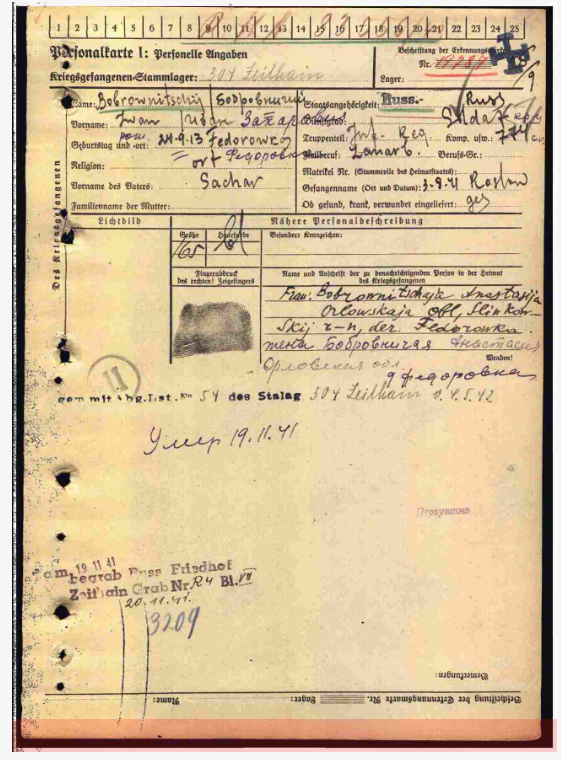 1 2 3 4 5 6 7 8 9 10 11 12 13 14 15 16 17 18 19 20 21 22 23 24 25
Personalkarte I: Personelle Angaben
Kriegsgefangenen-Stammlager: 304 Zeithain
Beschriftung der Erkennungsmarke
Nr. 19287
Lager:
Des Kriegsgefangenen
Name: Bobrownitschij / Бобровничий
Vorname: Iwan Иван Захарович
Geburtstag und -ort: 24.9.13 Fedorowka
ort Федоровка
Religion:
Vorname des Vaters: Sachar
Familienname der Mutter:
Staatsangehörigkeit: Russ.- Russ
Dienstgrad: Soldat
Truppenteil: Inf. Reg. Komp. usw.: 774
Zivilberuf: Berufs-Gr.:
Matrikel Nr. (Stammrolle des Heimatstaates):
Gefangennahme (Ort und Datum): 3.9.41
Ob gesund, krank, verwundet eingeliefert: ges
Lichtbild
Nähere Personalbeschreibung
Größe Haarfarbe Besondere Kennzeichen:
165 bl
Fingerabdruck
des rechten! Zeigefingers
Name und Anschrift der zu benachrichtigenden Person in der Heimat
des Kriegsgefangenen
Frau: Bobrownitschaja Anastasija
Orlowskaja obl,
r-n, der. Fedorowka
жена Бобровничая Анастасия
Орловская обл.
Wenden!
д Федоровка
11
gem mit Abg. List. No 54 des Stalag 304 Zeithain v. 4.5.42
Умер 19.11.41
am 19 11 41
begrab Russ Friedhof
Zeithain Grab Nr. R4 Bl. VII
20.11.41.
3209
Bemerkungen:
Beschriftung der Erkennungsmarke Nr. Lager: Name: